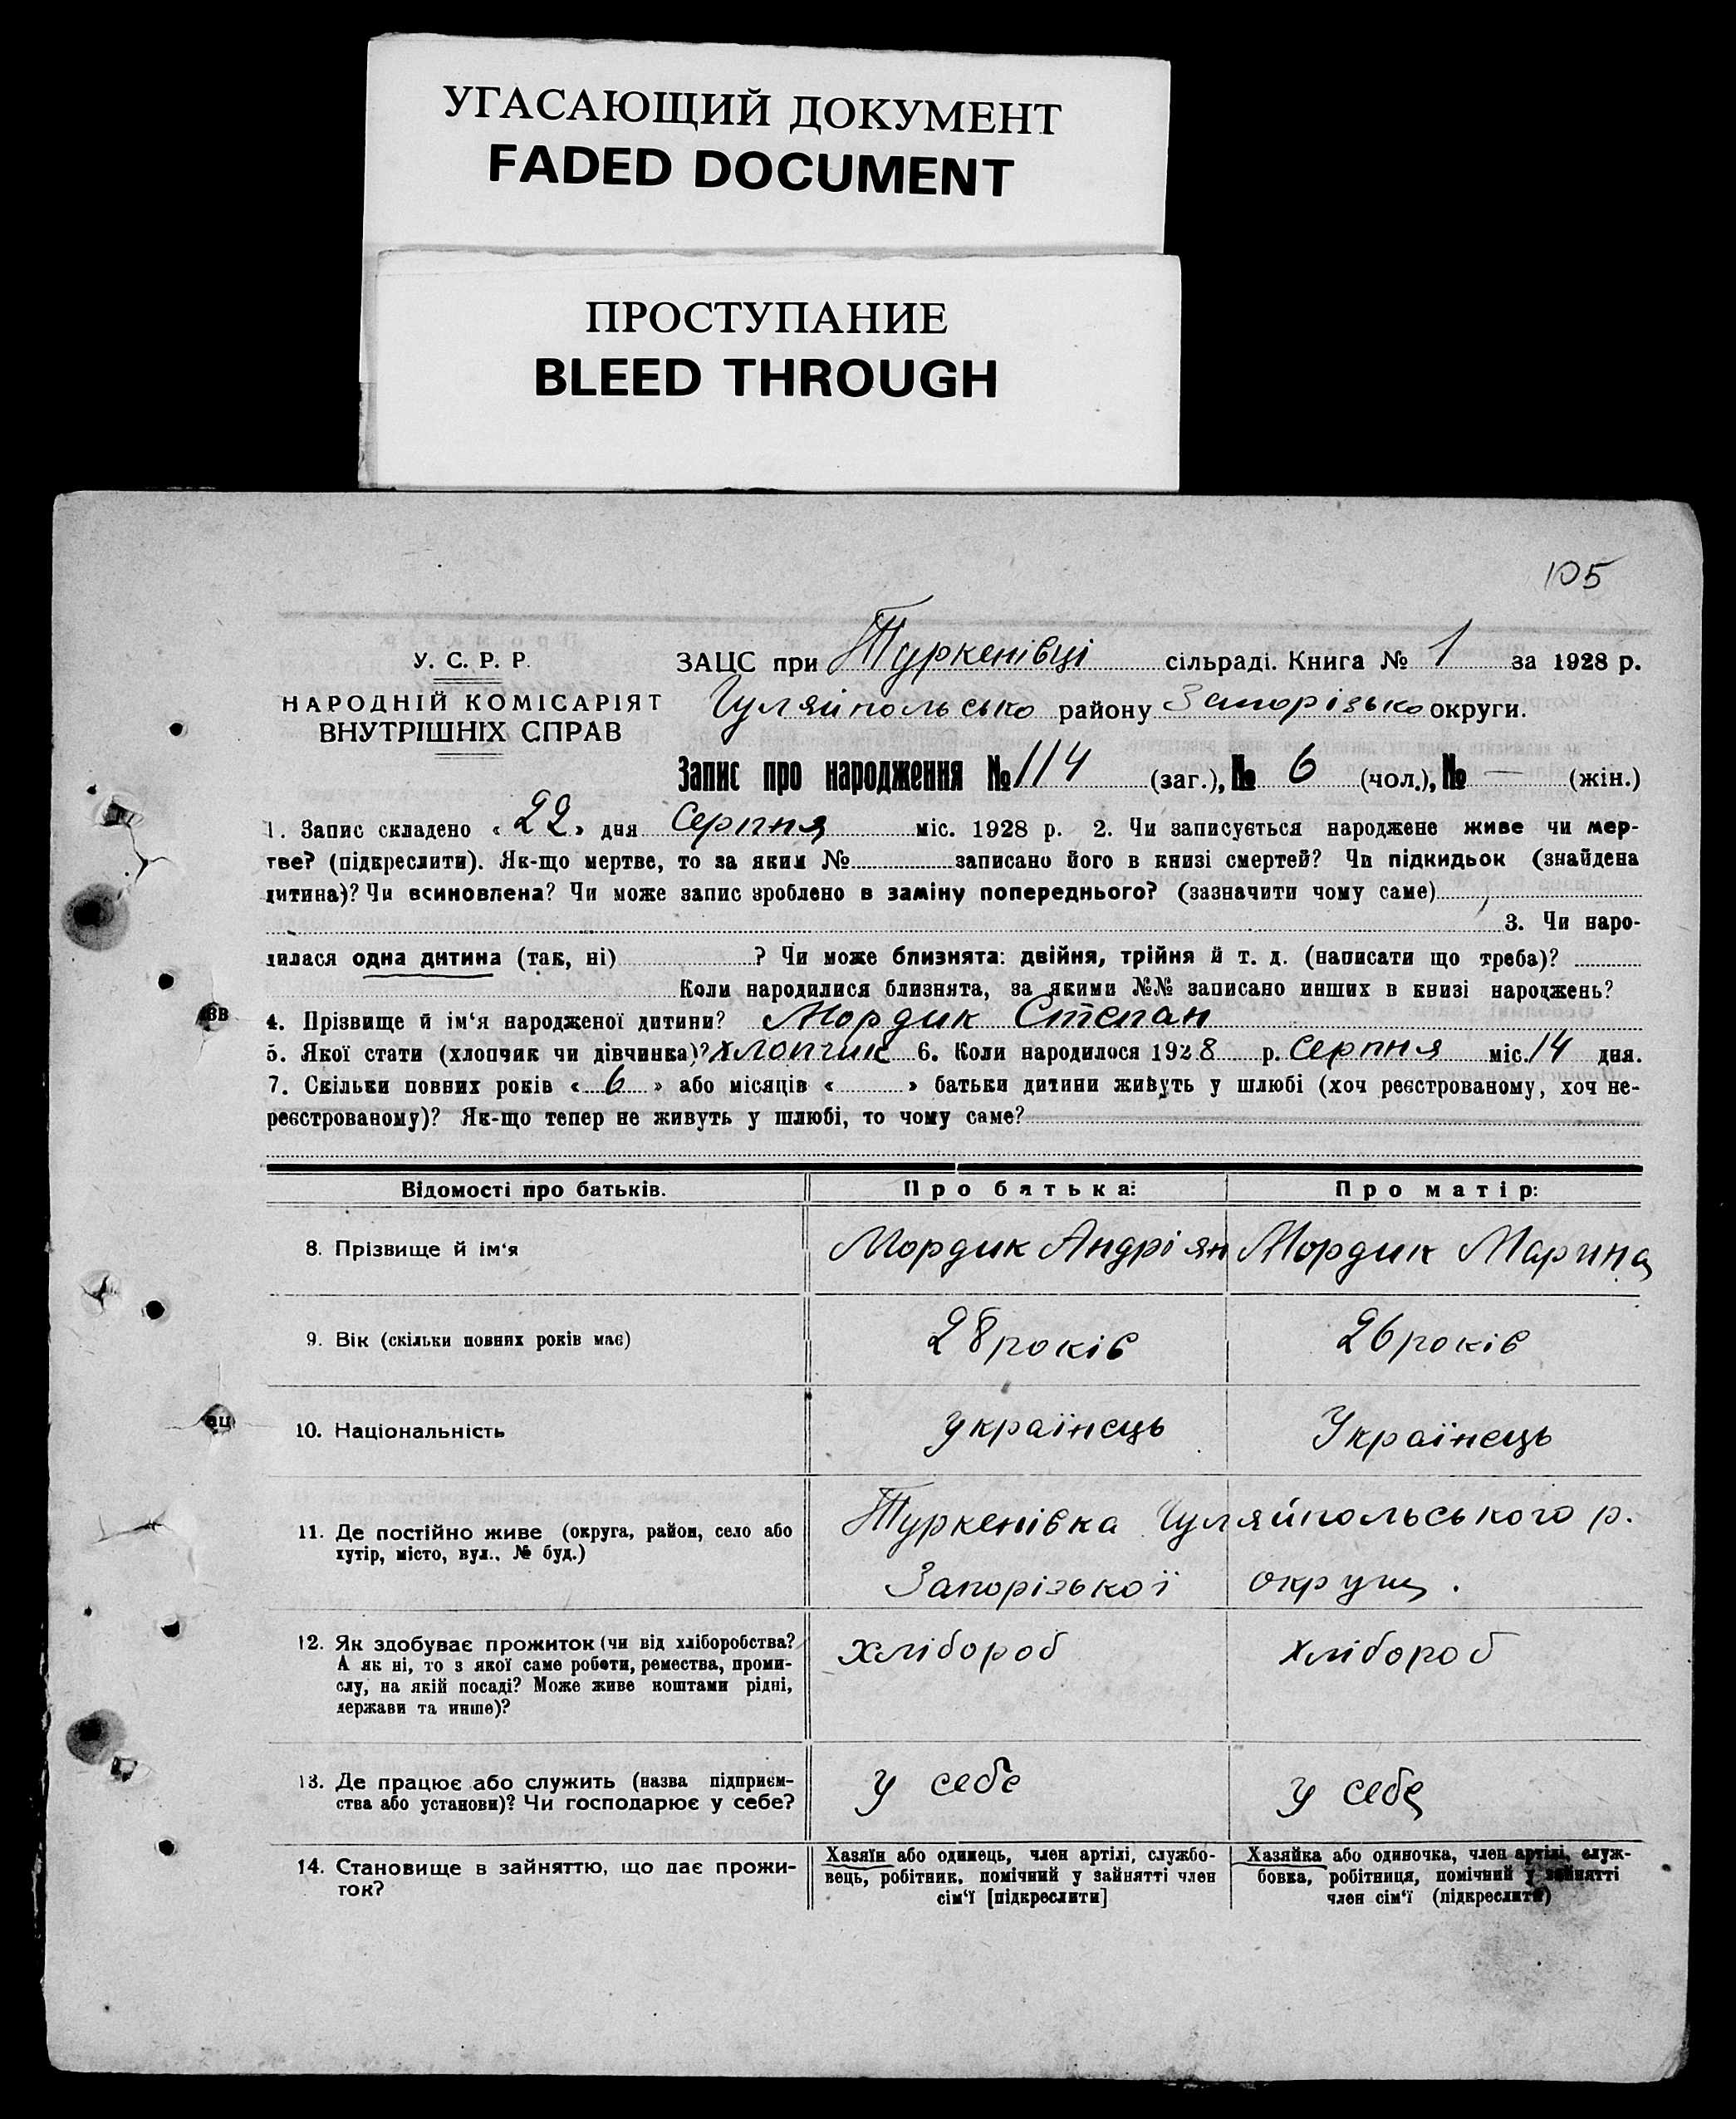 УГАСАЮЩИЙ ДОКУМЕНТ
FADED DOCUMENT
ПРОСТУПАНИЕ
BLEED THROUGH
105
У. С. Р. Р.
НАРОДНІЙ КОМІСАРІЯТ
ВНУТРІШНІХ СПРАВ
ЗАЦС при Туркенівці сільраді. Книга № 1 за 1928 р.
Гуляйпольсько району Запорізько округи.
Запис про народження № 114 (заг.), № 6 (чол.), № — (жін.)
1. Запис складено « 22 » дня Серпня міс. 1928 р. 2. Чи записується народжене живе чи мер-
тве? (підкреслити). Як-що мертве, то за яким № записано його в книзі смертей? Чи підкидьок (знайдена
дитина)? Чи всиновлена? Чи може запис зроблено в заміну попереднього? (зазначити чому саме)
3. Чи наро-
дилася одна дитина (так, ні) ? Чи може близнята: двійня, трійня й т. д. (написати що треба)?
Коли народилися близнята, за якими №№ записано инших в книзі народжень?
4. Прізвище й ім‘я народженої дитини? Мордик Степан
5. Якої стати (хлопчик чи дівчинка)? хлопчик 6. Коли народилося 1928 р. Серпня міс. 14 дня.
7. Скільки повних років « 6 » або місяців « » батьки дитини живуть у шлюбі (хоч реєстрованому, хоч не-
реєстрованому)? Як-що тепер не живуть у шлюбі, то чому саме?
Відомості про батьків. Про батька: Про матір:
8. Прізвище й ім‘я Мордик Андріян Мордик Марина
9. Вік (скільки повних років має) 28 років 26 років
10. Національність українець Українець
11. Де постійно живе (округа, район, село або
хутір, місто, вул., № буд.)
Туркенівка Гуляйпольського р.
Запорізької округи.
12. Як здобуває прожиток (чи від хліборобства?
А як ні, то з якої саме роботи, ремества, проми-
слу, на якій посаді? Може живе коштами рідні,
держави та инше)?
хлібороб хлібороб
13. Де працює або служить (назва підприєм-
ства або установи)? Чи господарює у себе?
у себе у себе
14. Становище в зайняттю, що дає прожи-
ток?
Хазяїн або одинець, член артілі, службо-
вець, робітник, помічний у зайнятті член
сім‘ї [підкреслити]
Хазяйка або одиночка, член артілі, служ-
бовка, робітниця, помічний у зайнятті
член сім‘ї (підкреслити)